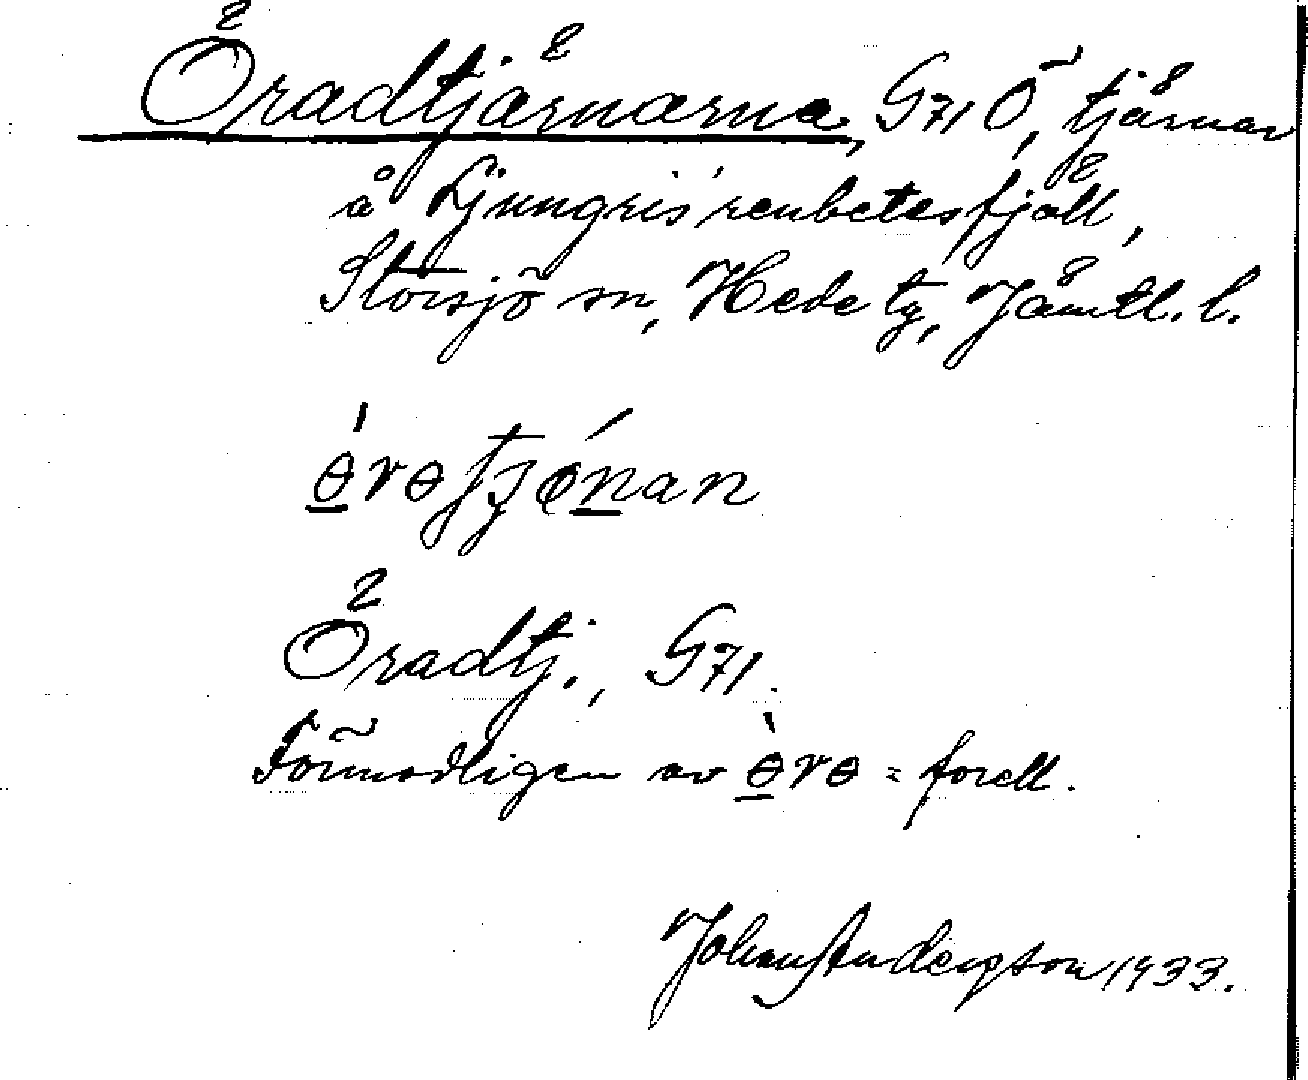 Öradtjärnarna, G71 Ö, tjärnar
å Ljungris renbetesfjäll,
Storsjö sn, Hede tg, Jämtl. l.
Öradtj., G71.
Förmodligen av = forell.
Johan Anderson 1933.